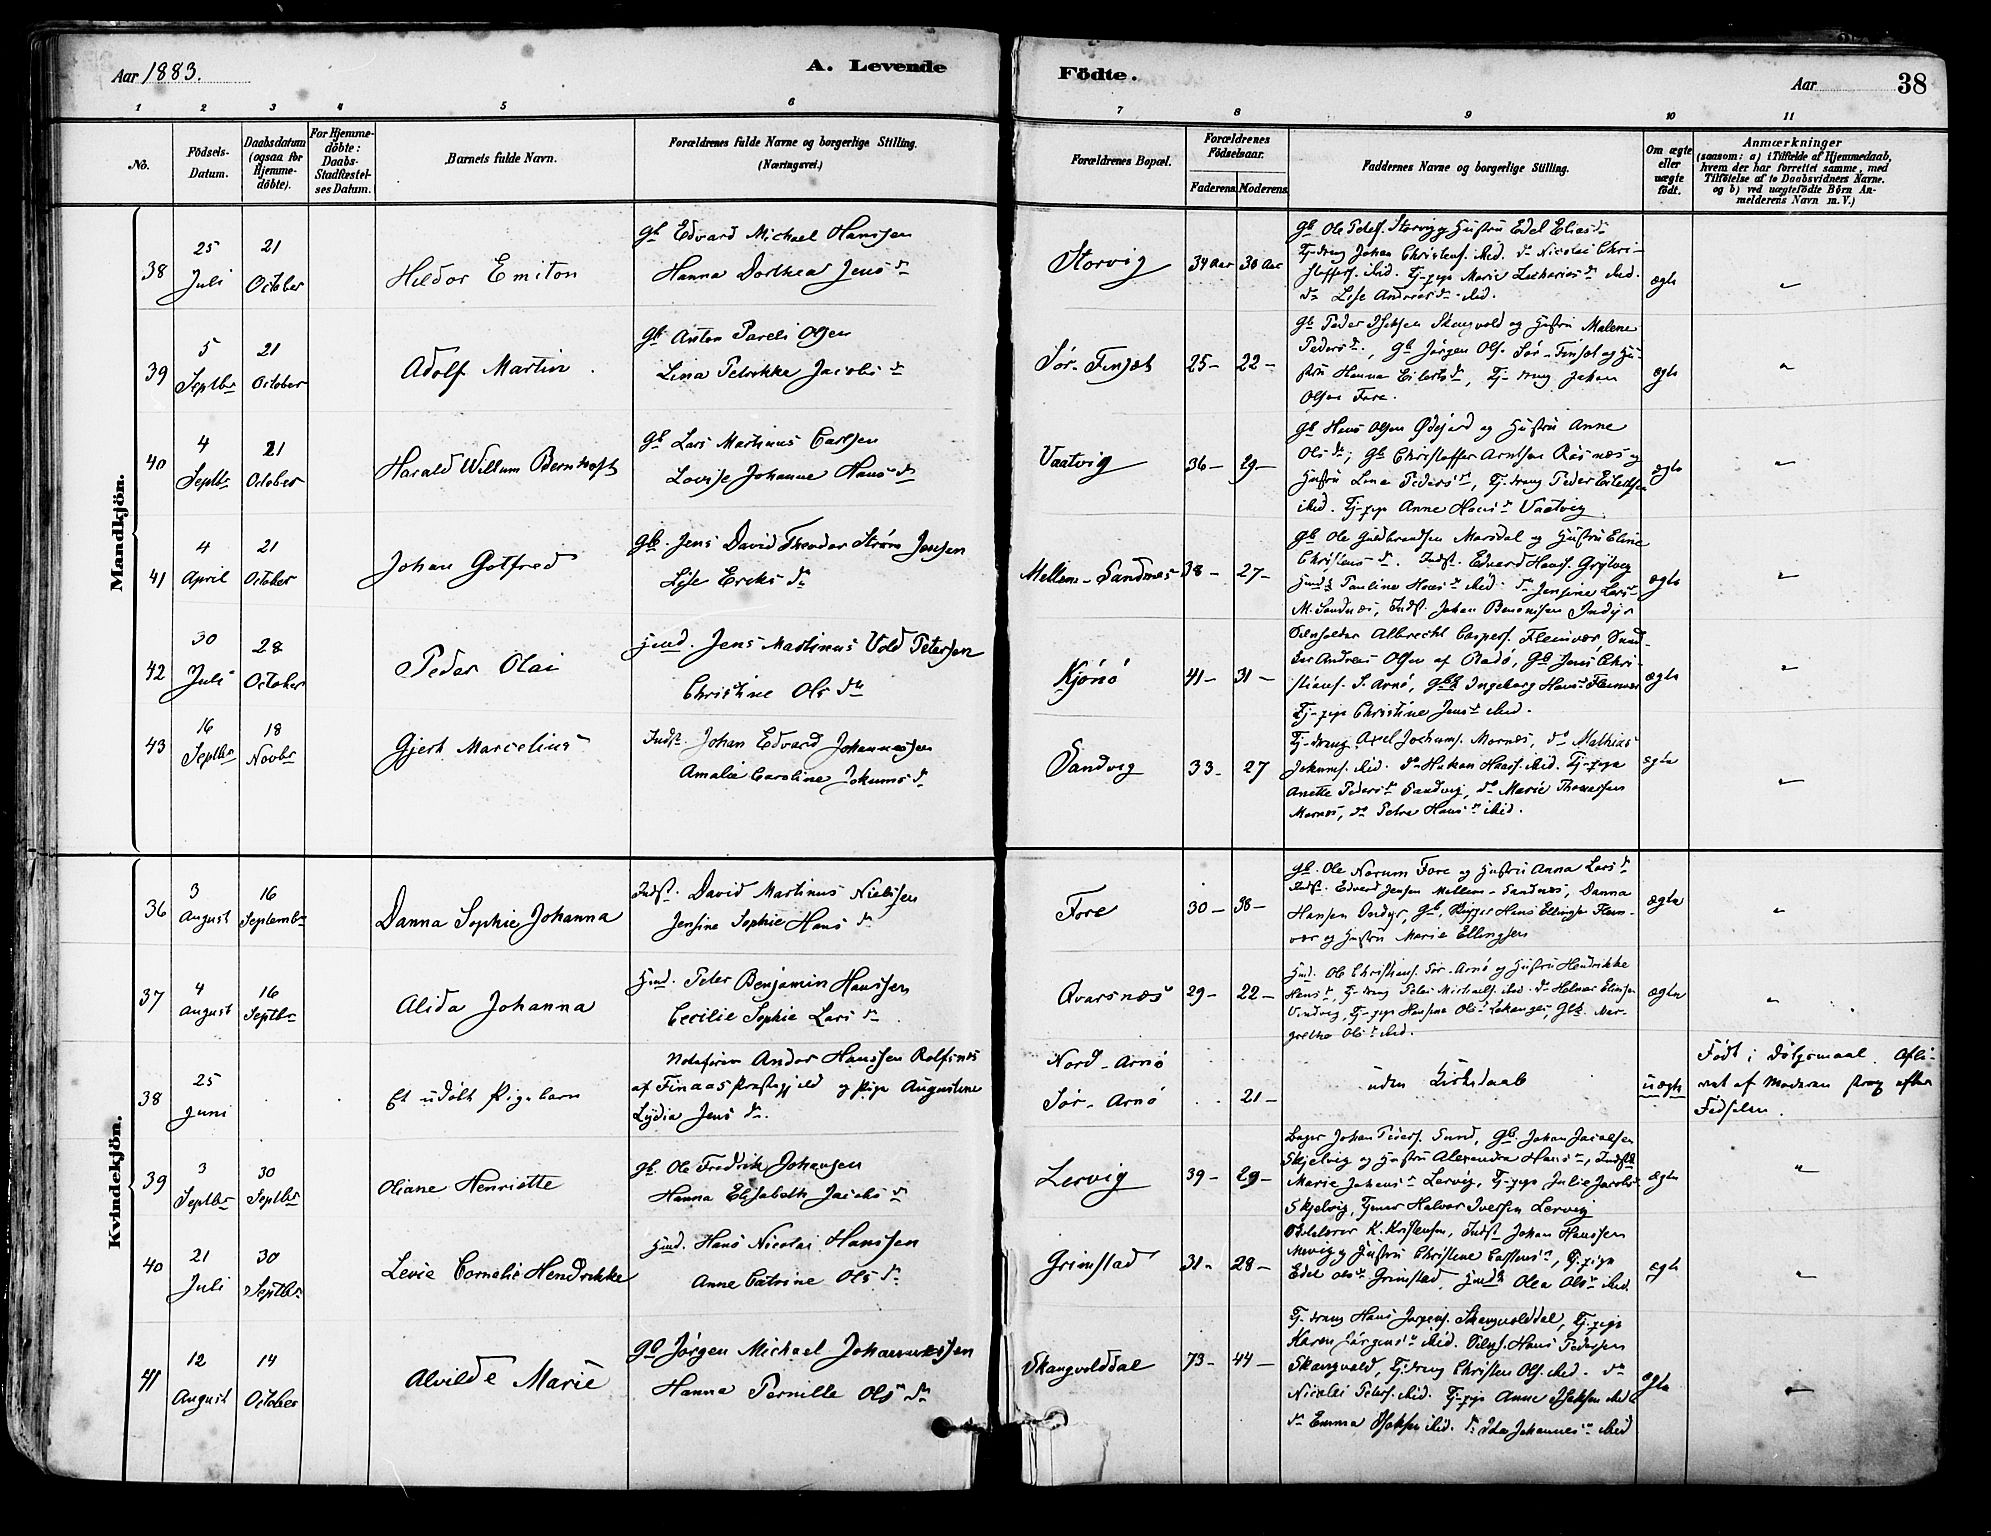 Aar 1883.
A. Levende
Födte.
Aar
38
1 2 3 4 5 6 7 8 9 10 11
No.
Födsels-Datum.
Daabsdatum (ogsaa for Hjemmedöbte).
For Hjemmedöbte: Daabs-Stadfæstelses Datum.
Barnets fulde Navn.
Forældrenes fulde Navne og borgerlige Stilling. (Næringsvei.)
Forældrenes Bopæl.
Forældrenes Födselsaar.
Faderens. Moderens.
Faddernes Navne og borgerlige Stilling.
Om ægte eller uægte födt.
Anmærkninger
(saasom: a) i Tilfælde af Hjemmedaab,
hvem der har forrettet samme, med
Tilföielse af to Daabsvidners Navne.
og b) ved uægtefödte Börn An-
melderens Navn m. V.)
Mandkjön.
38
25 Juli
21 October
Hildor Emiton
Gb Edvard Michael Hanssen
Hanna Dorthea Jens dr
Storvig
34 Aar 30 Aar
Gb Ole Peters. Storvig Hustru Edel Elias dr
Tj-dreng Johan Christens. ibid. do Nicolai Chri-
stoffers. ibid. Tj-pige Marie Zacharias dr ibid.
do Lise Andreas dr ibid.
ægte
"
39
5 Septbr
21 October
Adolf Martin
Gb Anton Pareli Olsen
Lina Petrikke Jacobs dr
Sör-Finset
25- 22-
Gb Peder Isaksen Skangvold og Hustru Malene
Peders dr, Gb Jörgen Ols. Sör-Finset og Hu-
stru Hanna Eilerts dr, Tj-dreng Johan
Olsen Fore.
ægte
"
40
4 Septbr
21 October
Harald Willum Bernhoft
Gb Lars Martinus Carlsen
Lovise Johanne Hans dr
Vaatvig
36- 29-
Gb Hans Olsen Ødejord og Hustru Anne
Ols dr; Gb Christoffer Arntsen Räsnæs og
Hustru Lina Peders dr, Tj-dreng Peder Eilertsen
ibid. Tj-pige Anne Hans dr Vaatvig.
ægte
"
41
4 April
21 October
Johan Gotfred
Gb. Jens David Theodor Ström Jensen
Lise Ericks dr
Mellem-Sandnes
38- 27-
Gb Ole Guldbrandsen Marsdal og Hustru Eline
Christens dr. Indst. Edvard Hans. Grytvig
Pauline Hans dr ibid. do Jensine Lars dr
M. Sandnæs, Indst. Johan Benonisen Indyr
ægte
"
42
30 Juli
28 October
Peder Olai
Hmd. Jens Martinus Vold Petersen
Christine Ols dr
Kjönö
41- 31-
Albrecht Caspers. Fleinvær,
Andreas Olsen af Rödö, Gb Jens Chri-
stians. S. Arnö, Ingeborg Hans dr Fleinvær
Tj-pige Christine Jens dr ibid.
ægte
"
43
16 Septbr
18 Novbr
Gjert Marcelius
Indst. Johan Edvard Johannessen
Amalie Caroline Jokums dr
Sandvig
33- 27
Tj-dreng Axel Jochums. Mornes, do Mathias
Jokums. ibid. do Hakon Haars. ibid. Tj-pige
Anette Peders dr Sandvig, do Marie Thomassen
Mornes, do Petra Hans dr ibid.
ægte
"
Kvindekjön.
36
3 August
16 Septembr
Danna Sophie Johanna
Indst. David Martinus Nielssen
Jensine Sophie Hans dr
Fore
30- 38-
Gb. Ole Norum Fore og Hustru Anna Lars dr
Indst. Edvard Jensen Mellem-Sandnæs, Danna
Hansen Indyr, Gb. Hans Ellingsen Flein-
vær og Hustru Marie Ellingsen
ægte
"
37
4 August
16 Septbr
Alida Johanna
Hmd. Peter Benjamin Hanssen
Cecilie Sophie Lars dr
Qvarsnæs
29- 22-
Hmd. Ole Christians. Sör-Arnö og Hustru Hendrikke
Hans dr, Tj-dreng Peter Michaels. ibid. do Helmer Eliasen
Tj-pige Hansine Ols dr Mar-
gretha Ols dr ibid.
ægte
"
38
25 Juni
Et udöbt Pigebarn
Notefören Andor Hanssen Rolfsnes
af Finaas Præstegjeld og Pige Augustine
Lydia Jens dr.
Nord-Arnö
Sör-Arnö
21-
uden Kirkedaab
uægte
Født i Dølgsmaal. Afli-
vet af Moderen strax efter
Fødselen.
39
3 Septbr
30 Septbr
Oliane Henriette
Gb. Ole Fredrik Johansen
Hanna Elisabeth Jacobs dr
Lervig
39- 29-
Johan Peders. Sund, Gb. Johan Jacobsen
Skjelvig og Hustru Alexandra Hans dr,
Marie Johans dr Lervig, Tj-pige Julie Jacobs dr
Skjelvig, Halvor Iversen Lervig
ægte
"
40
21 Juli
30 Septbr
Levie Cornelie Hendrikke
Hmd. Hans Nicolai Hanssen
Anne Catrine Ols dr
Grimstad
31- 28-
K. Kristensen, Indst Johan Hanssen
Hustru Christine Tj-pige
Edel Ols dr Grimstad, Olea Ols dr ibid.
ægte
"
41
12 August
14 October
Alvilde Marie
Gb Jörgen Michael Johannessen
Hanna Pernille Ols dr
Skangvolddal
73- 44-
Tj-dreng Hans Jörgens. Skangvolddal, Tj-pige
Karen Jörgens dr ibid. Hans Pedersen
Skangvold, Tj-dreng Christen Ols. ibid. do
Nicolai Peters. ibid. Tj-pige Anne Isaksen ibid.
do Emma Isaksen ibid. do Ida Johannes dr ibid
ægte
"